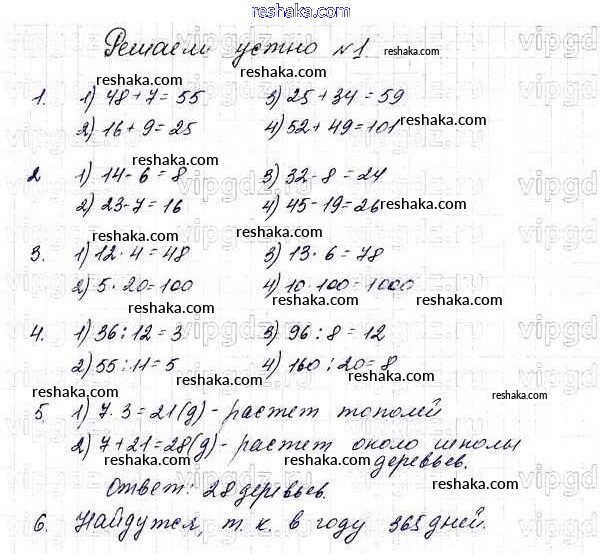 reshaka.com
Решаем устно №1 reshaka.com
reshaka.com
1. 1) 48+7=55 3) 25+34=59
reshaka.com
2) 16+9=25 4) 52+49=101
reshaka.com
2 1) 14-6=8 3) 32-8=24
2) 23-7=16 4) 45-19=26 reshaka.com
reshaka.com
3. 1) 12·4=48 3) 13·6=78
reshaka.com
2) 5·20=100 4) 10·100=1000
reshaka.com reshaka.com
4. 1) 36:12=3 3) 96:8=12
reshaka.com
2) 55:11=5 4) 160:20=8
reshaka.com reshaka.com reshaka.com
5. 1) 7·3=21(д)-растет тополей
reshaka.com
2) 7+21=28(д)-растет около школы
reshaka.com reshaka.com деревьев.
Ответ: 28 деревьев.
reshaka.com reshaka.com
6. Найдутся, т.к. в году 365 дней.
reshaka.com reshaka.com
vipgdz.ru